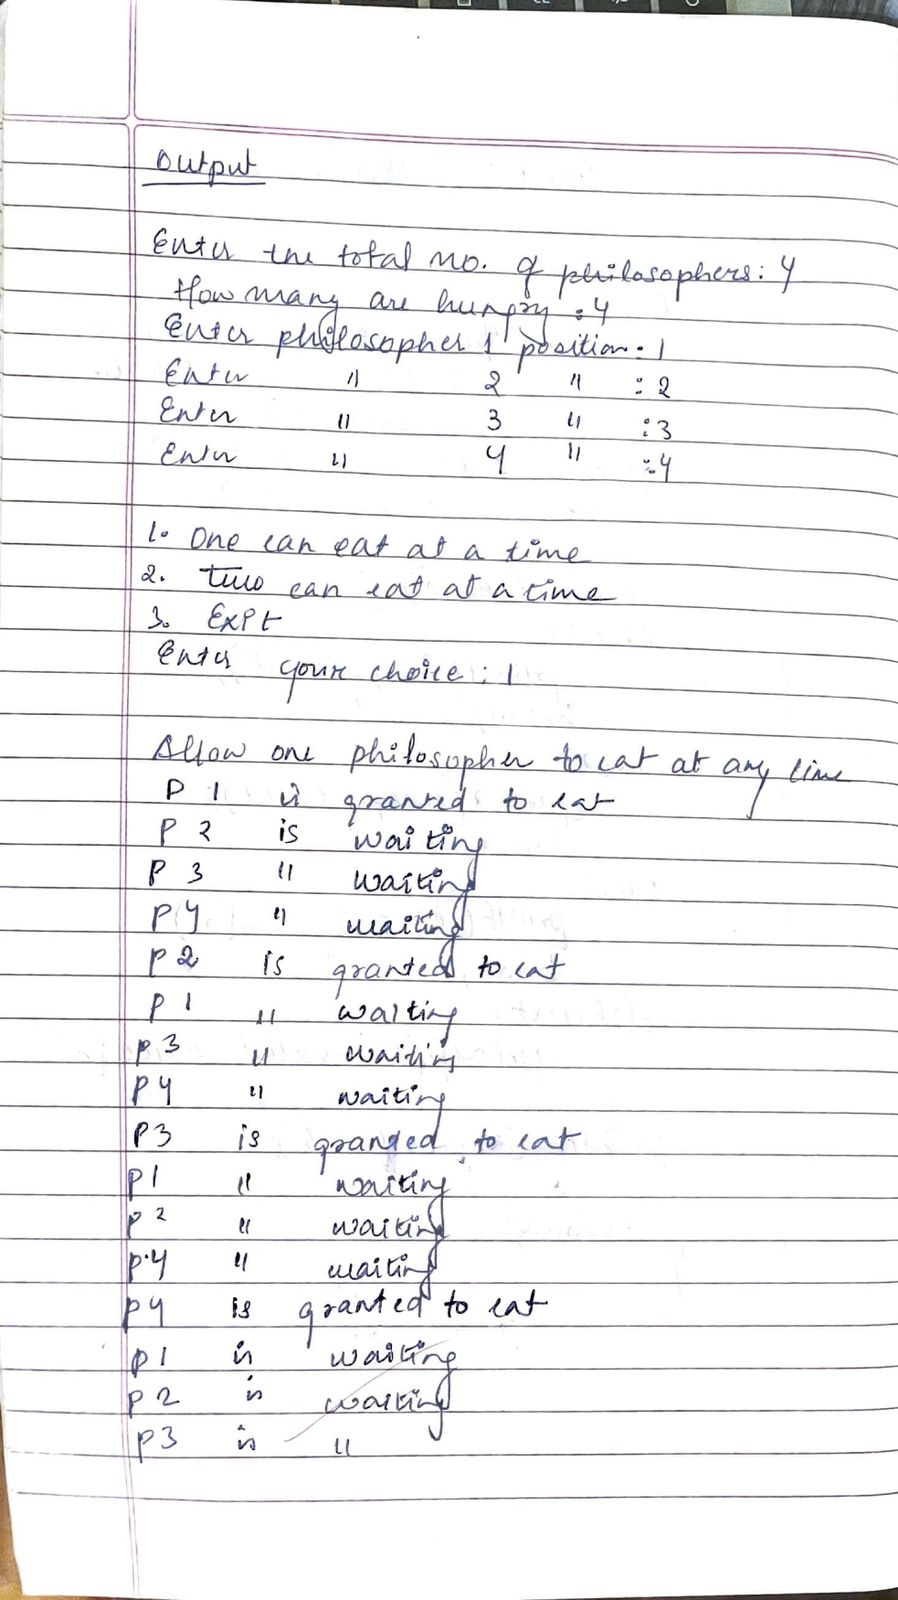 Output
Enter the total no. of philosophers: 4
How many are hungry : 4
Enter philosopher 1 position : 1
Enter " 2 " : 2
Enter " 3 " : 3
Enter " 4 " : 4
1. One can eat at a time
2. Two can eat at a time
3. Exit
Enter your choice : 1
Allow one philosopher to eat at any time
P 1 is granted to eat
P 2 is waiting
P 3 " waiting
P 4 " waiting
P 2 is granted to eat
P 1 " waiting
P 3 " waiting
P 4 " waiting
P 3 is granted to eat
P 1 " waiting
P 2 " waiting
P 4 " waiting
P 4 is granted to eat
P 1 is waiting
P 2 is waiting
P 3 is "